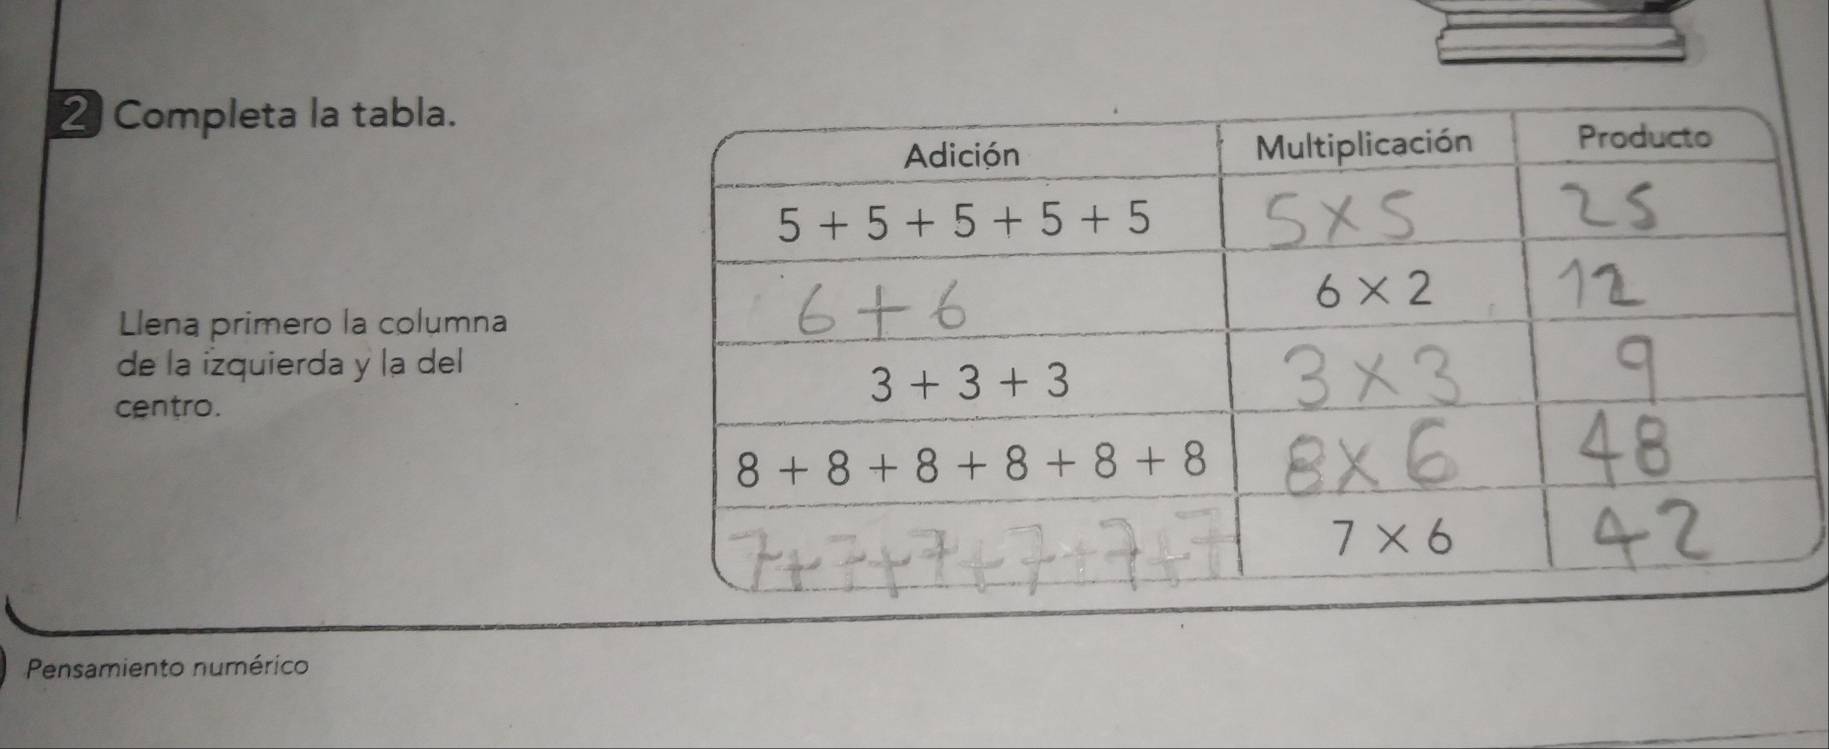 2 Completa la tabla.
Llena primero la columna
de la izquierda y la del
centro.
Adición Multiplicación Producto
5 + 5 + 5 + 5 + 5 5 × 5 25
6 + 6 6 × 2 12
3 + 3 + 3 3 × 3 9
8 + 8 + 8 + 8 + 8 + 8 8 × 6 48
7 + 7 + 7 + 7 + 7 + 7 7 × 6 42
Pensamiento numérico